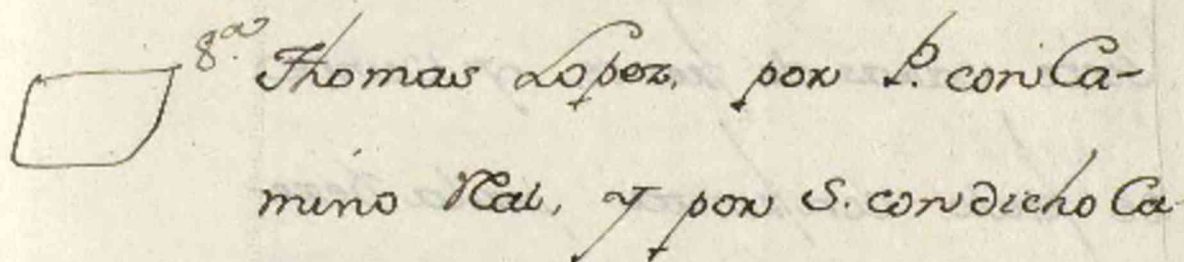 8.ª Thomas Lopez, por P. con Ca-
mino Ral, y por S. con dicho Ca-